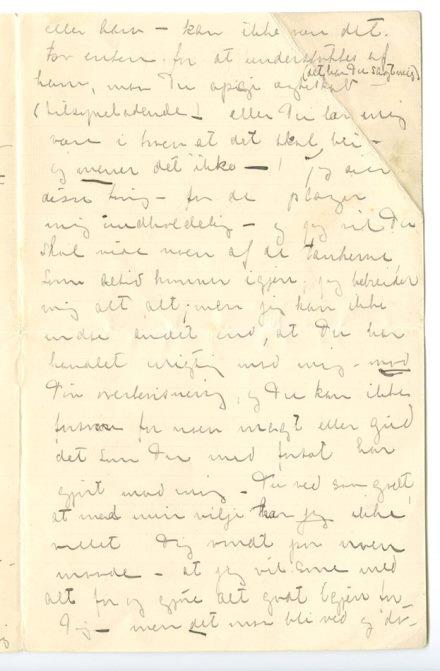 eller ham – kan ikke være det.
For enten for at understøttes af
(det har Du sagt mig)
ham, maa Du opgi ægteskab
(tilsyneladende) – eller Du lar mig
være i troen at det skal bli –
og mener det ikke – ! Jeg sier
disse ting – for de plager
mig uudholdelig – og jeg vil Du
skal vide noen af de tankerne
som altid kommer igjen; jeg bebreider
mig alt, alt; men jeg kan ikke
indse andet end, at Du har
handlet urigtig mod mig – mod
Din overbevisning, og Du kan ikke
forsvare for noen magt eller gud
det som Du med forsæt har
gjort mod mig – Du ved saa godt,
at med min vilje har jeg ikke
villet Dig vondt paa noen
maade – at jeg vil sone med
alt for og gjøre alt godt igjen for
Dig – men det maa bli ved og